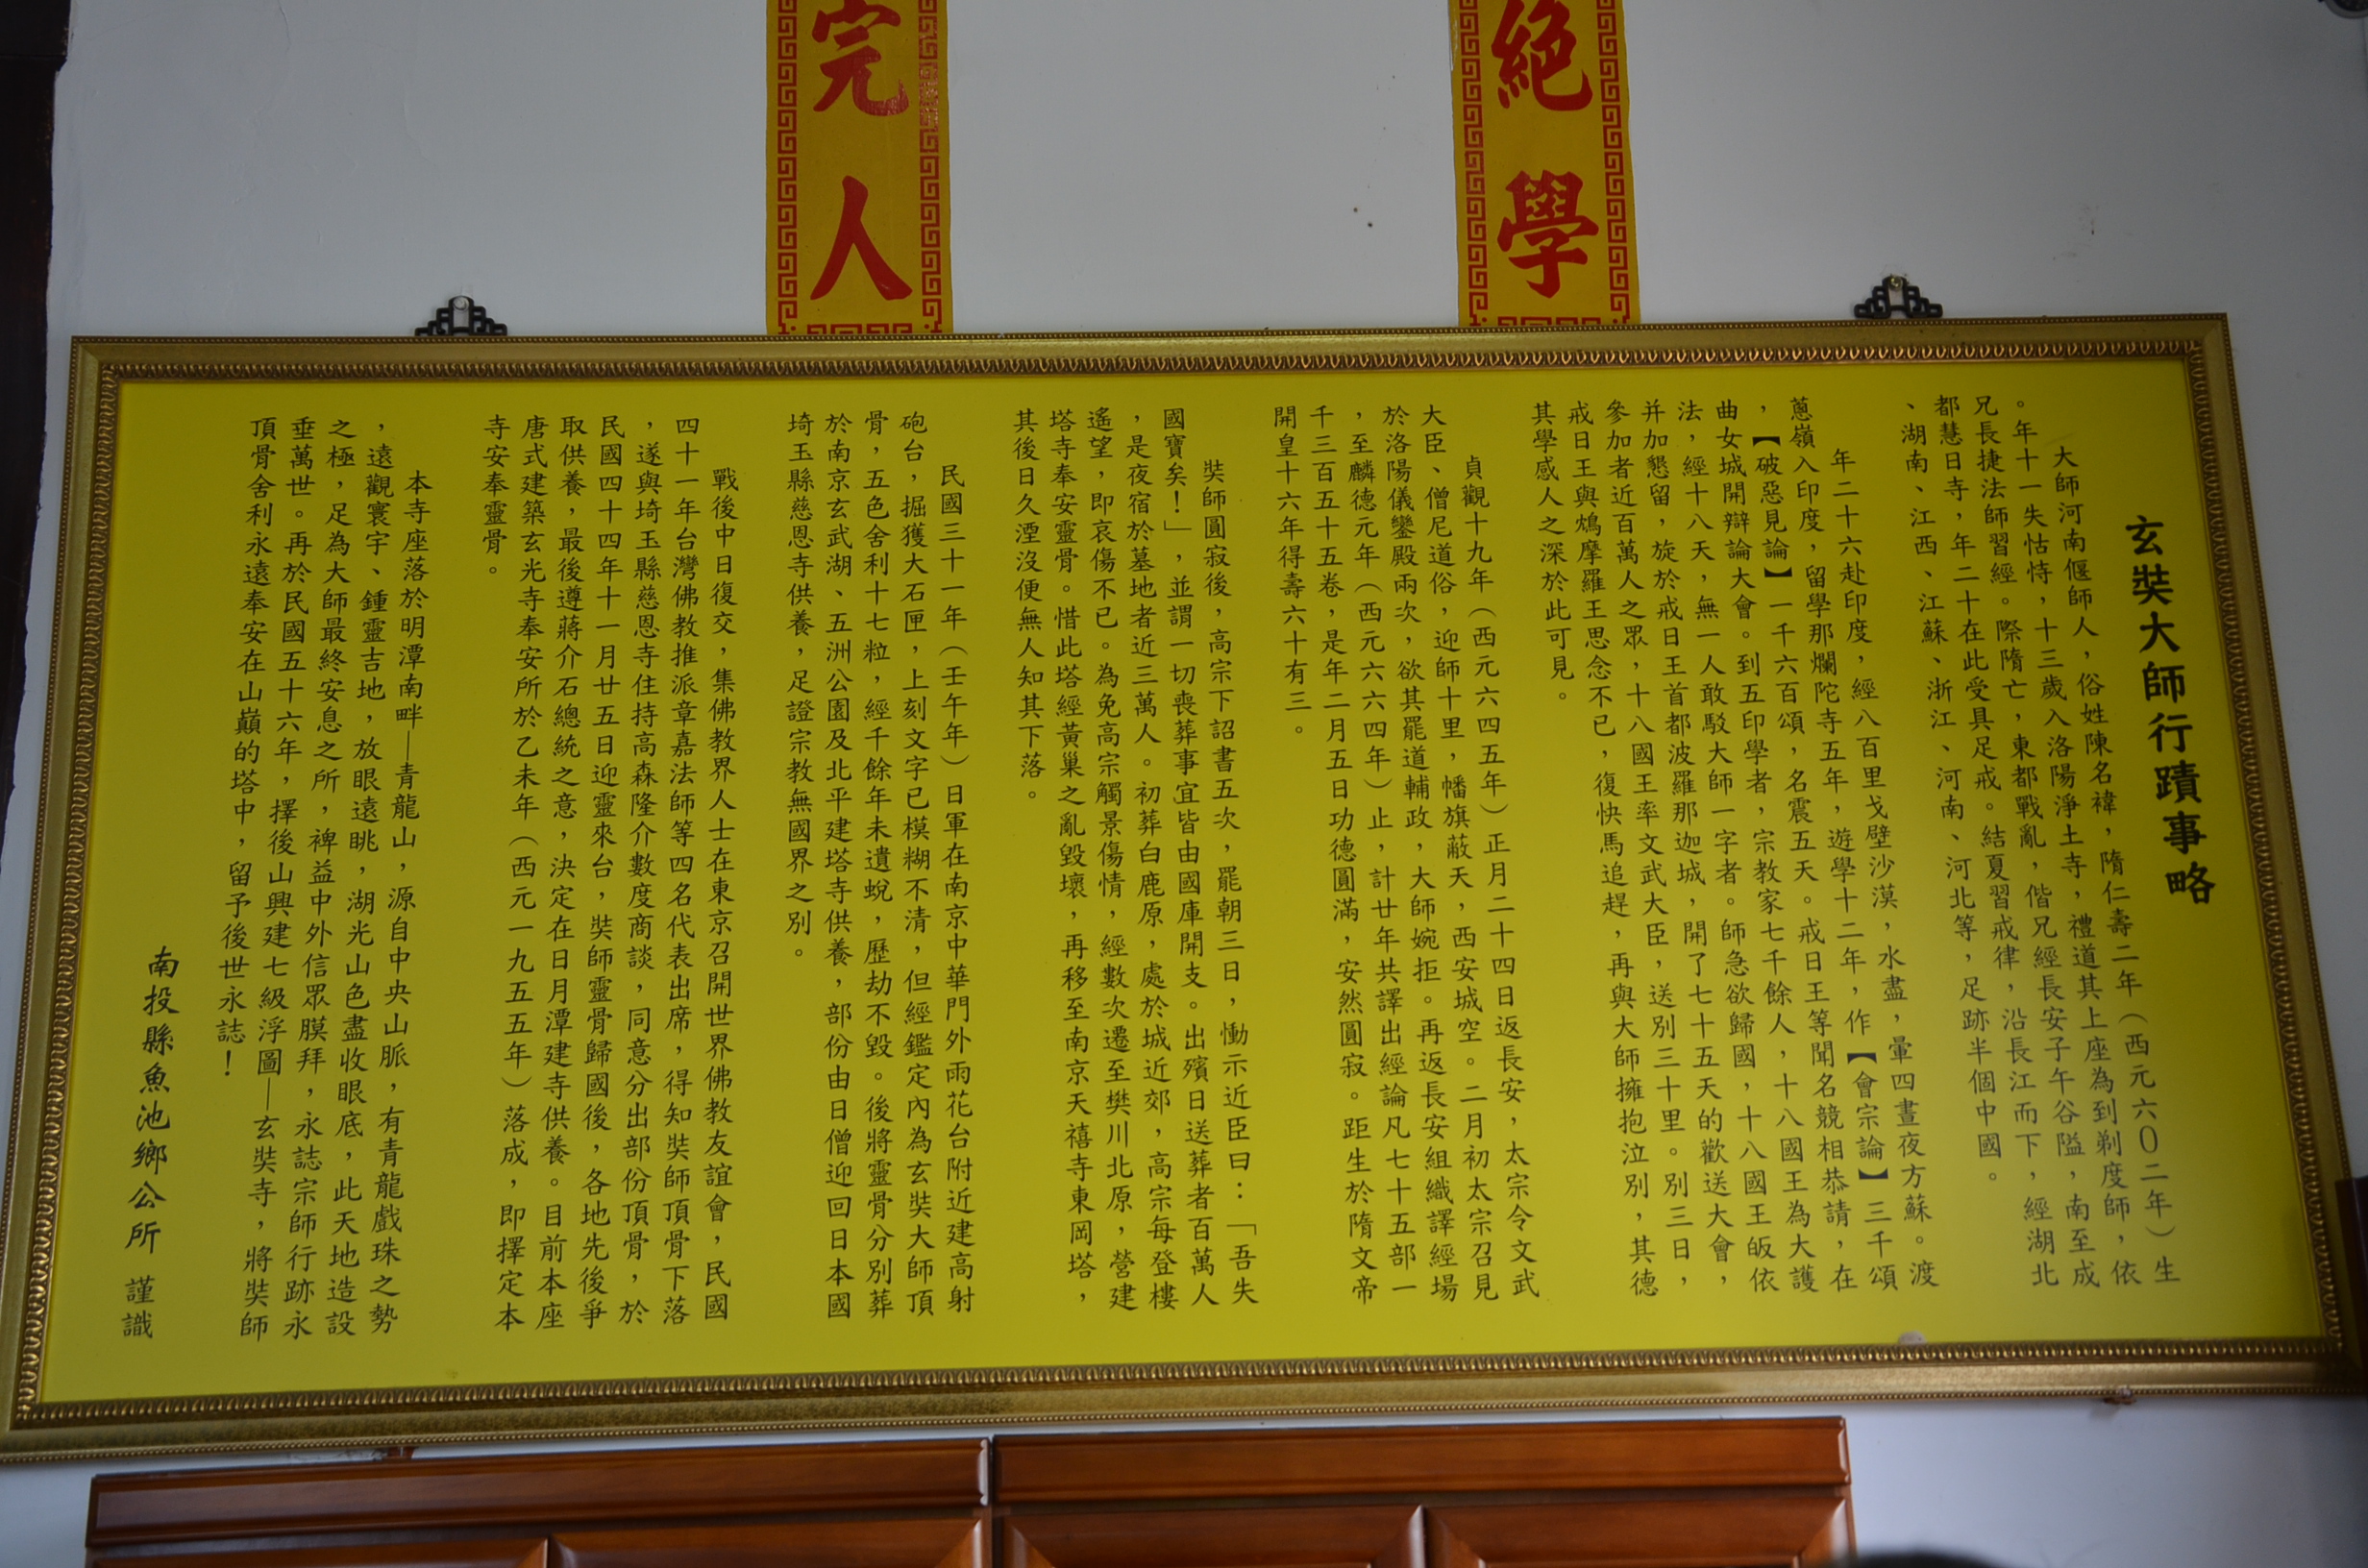 絕學
完人
玄奘大師行蹟事略
大師河南偃師人，俗姓陳名褘，隋仁壽二年（西元六0二年）生
。年十一失怙恃，十三歲入洛陽淨土寺，禮道其上座為到剃度師，依
兄長捷法師習經。際隋亡，東都戰亂，偕兄經長安子午谷隘，南至成
都慧日寺，年二十在此受具足戒。結夏習戒律，沿長江而下，經湖北
、湖南、江西、江蘇、浙江、河南、河北等，足跡半個中國。
年二十六赴印度，經八百里戈壁沙漠，水盡，暈四晝夜方蘇。渡
蔥嶺入印度，留學那爛陀寺五年，遊學十二年，作【會宗論】三千頌
，【破惡見論】一千六百頌，名震五天。戒日王等聞名競相恭請，在
曲女城開辯論大會。到五印學者，宗教家七千餘人，十八國王為大護
法，經十八天，無一人敢駁大師一字者。師急欲歸國，十八國王皈依
并加懇留，旋於戒日王首都波羅那迦城，開了七十五天的歡送大會，
參加者近百萬人之眾，十八國王率文武大臣，送別三十里。別三日，
戒日王與鴆摩羅王思念不已，復快馬追趕，再與大師擁抱泣別，其德
其學感人之深於此可見。
貞觀十九年（西元六四五年）正月二十四日返長安，太宗令文武
大臣、僧尼道俗，迎師十里，幡旗蔽天，西安城空。二月初太宗召見
於洛陽儀鑾殿兩次，欲其罷道輔政，大師婉拒。再返長安組織譯經場
，至麟德元年（西元六六四年）止，計廿年共譯出經論凡七十五部一
千三百五十五卷，是年二月五日功德圓滿，安然圓寂。距生於隋文帝
開皇十六年得壽六十有三。
奘師圓寂後，高宗下詔書五次，罷朝三日，慟示近臣曰：「吾失
國寶矣！」，並謂一切喪葬事宜皆由國庫開支。出殯日送葬者百萬人
，是夜宿於墓地者近三萬人。初葬白鹿原，處於城近郊，高宗每登樓
遙望，即哀傷不已。為免高宗觸景傷情，經數次遷至樊川北原，營建
塔寺奉安靈骨。惜此塔經黃巢之亂毀壞，再移至南京天禧寺東岡塔，
其後日久湮沒便無人知其下落。
民國三十一年（壬午年）日軍在南京中華門外雨花台附近建高射
砲台，掘獲大石匣，上刻文字已模糊不清，但經鑑定內為玄奘大師頂
骨，五色舍利十七粒，經千餘年未遺蛻，歷劫不毀。後將靈骨分別葬
於南京玄武湖、五洲公園及北平建塔寺供養，部份由日僧迎回日本國
埼玉縣慈恩寺供養，足證宗教無國界之別。
戰後中日復交，集佛教界人士在東京召開世界佛教友誼會，民國
四十一年台灣佛教推派章嘉法師等四名代表出席，得知奘師頂骨下落
，遂與埼玉縣慈恩寺住持高森隆介數度商談，同意分出部份頂骨，於
民國四十四年十一月廿五日迎靈來台，奘師靈骨歸國後，各地先後爭
取供養，最後遵蔣介石總統之意，決定在日月潭建寺供養。目前本座
唐式建築玄光寺奉安所於乙未年（西元一九五五年）落成，即擇定本
寺安奉靈骨。
本寺座落於明潭南畔—青龍山，源自中央山脈，有青龍戲珠之勢
，遠觀寰宇、鍾靈吉地，放眼遠眺，湖光山色盡收眼底，此天地造設
之極，足為大師最終安息之所，裨益中外信眾膜拜，永誌宗師行跡永
垂萬世。再於民國五十六年，擇後山興建七級浮圖—玄奘寺，將奘師
頂骨舍利永遠奉安在山巔的塔中，留予後世永誌！
南投縣魚池鄉公所 謹識